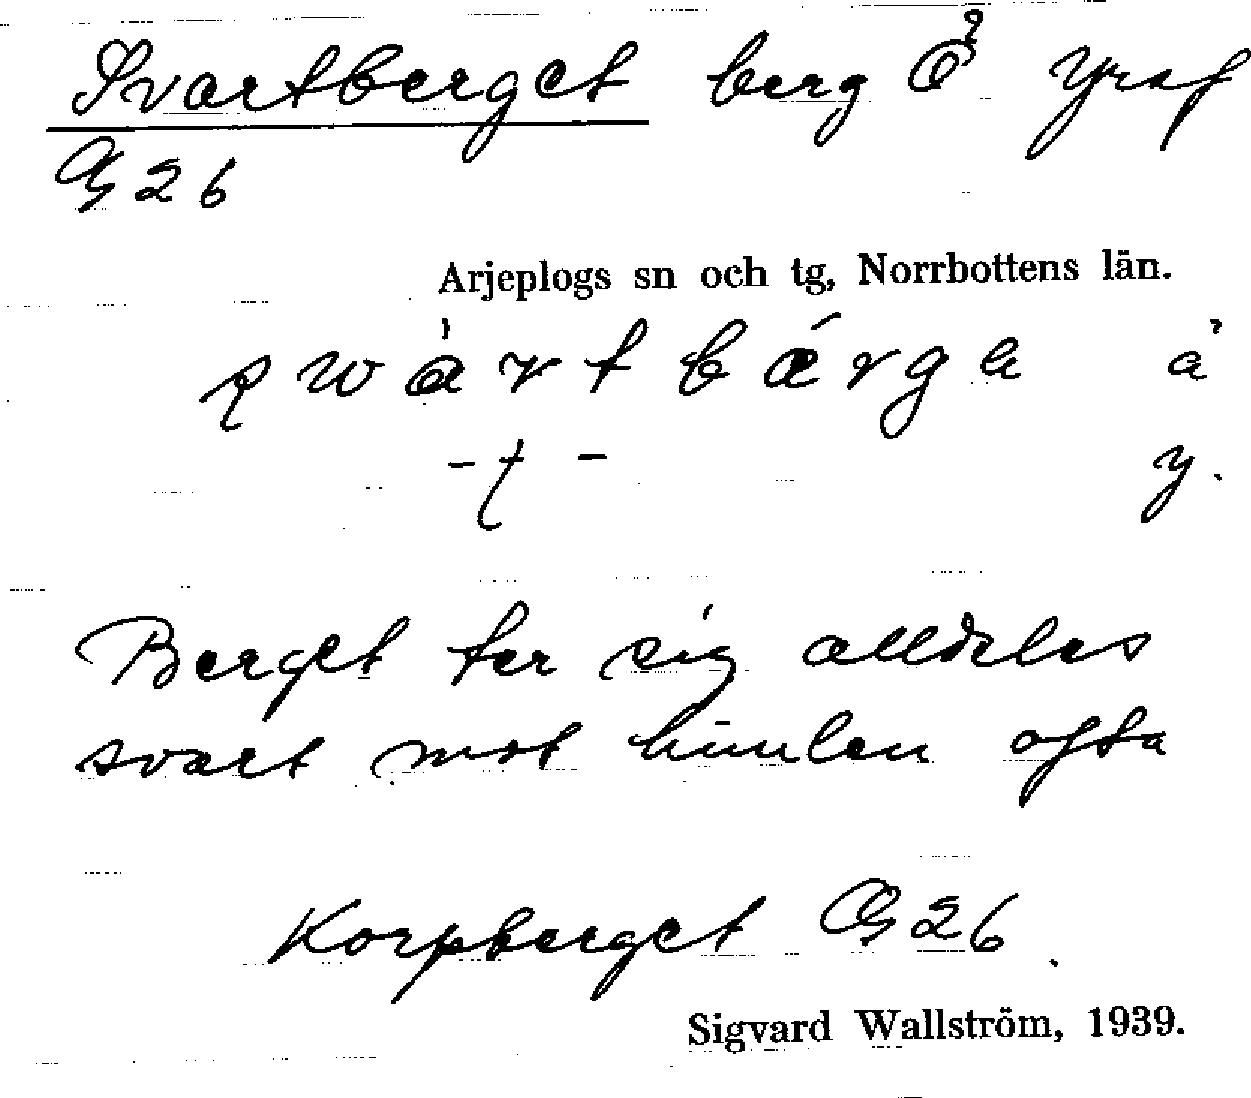 Svartberget berg Ö Yraf
G 26
Arjeplogs sn och tg, Norrbottens län.
swàrtbárga a
-t- y.
Berget ter sig alldeles
svart mot himlen ofta
Korpberget G 26.
Sigvard Wallström, 1939.